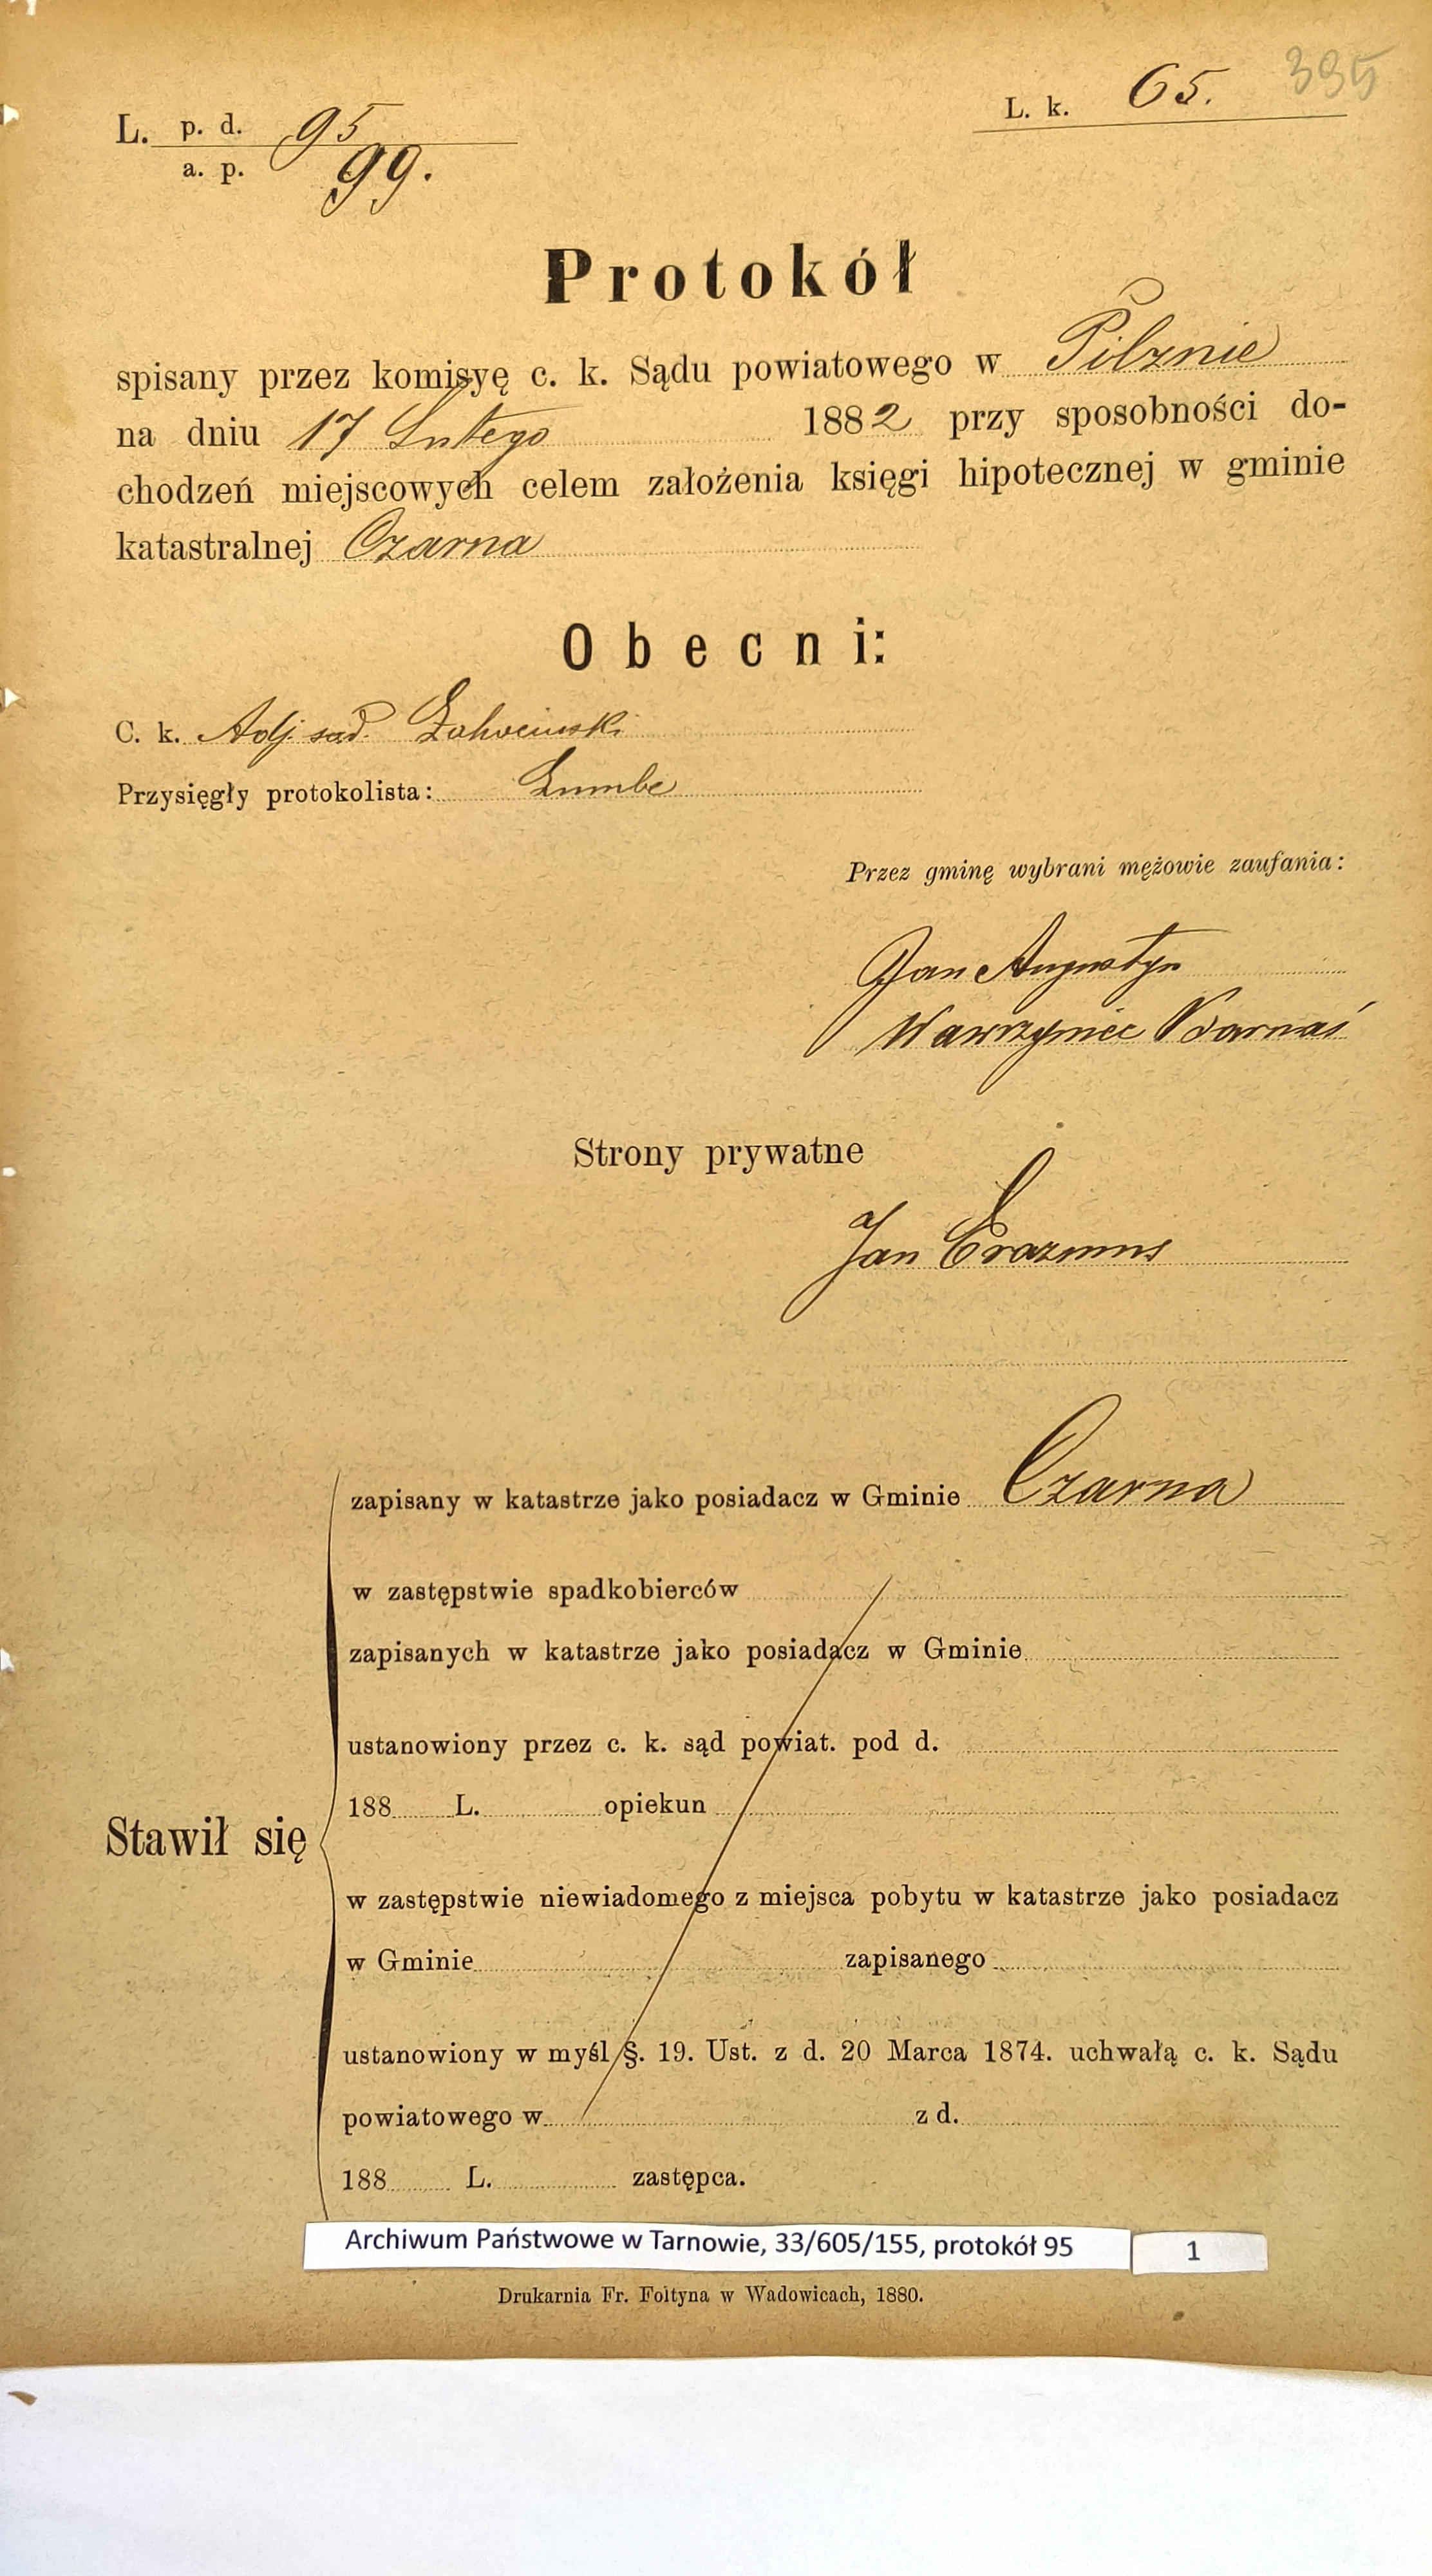 395
L. k. 65.
L. p. d. 95
a. p. 99.
Protokół
spisany przez komisyę c. k. Sądu powiatowego w Pilznie
na dniu 17 Lutego 1882 przy sposobności do-
chodzeń miejscowych celem założenia księgi hipotecznej w gminie
katastralnej Czarna
Obecni:
C. k. Adj. sąd.
Przysięgły protokolista:
Przez gminę wybrani mężowie zaufania:
Jan Augustyn
Wawrzyniec Barnaś
Strony prywatne
Jan Erazmus
zapisany w katastrze jako posiadacz w Gminie Czarna
w zastępstwie spadkobierców
zapisanych w katastrze jako posiadacz w Gminie
ustanowiony przez c. k. sąd powiat. pod d.
188 L. opiekun
Stawił się
w zastępstwie niewiadomego z miejsca pobytu w katastrze jako posiadacz
w Gminie zapisanego
ustanowiony w myśl §. 19. Ust. z d. 20 Marca 1874. uchwałą c. k. Sądu
powiatowego w z d.
188 L. zastępca.
Archiwum Państwowe w Tarnowie, 33/605/155, protokół 95 1
Drukarnia Fr. Foltyna w Wadowicach, 1880.